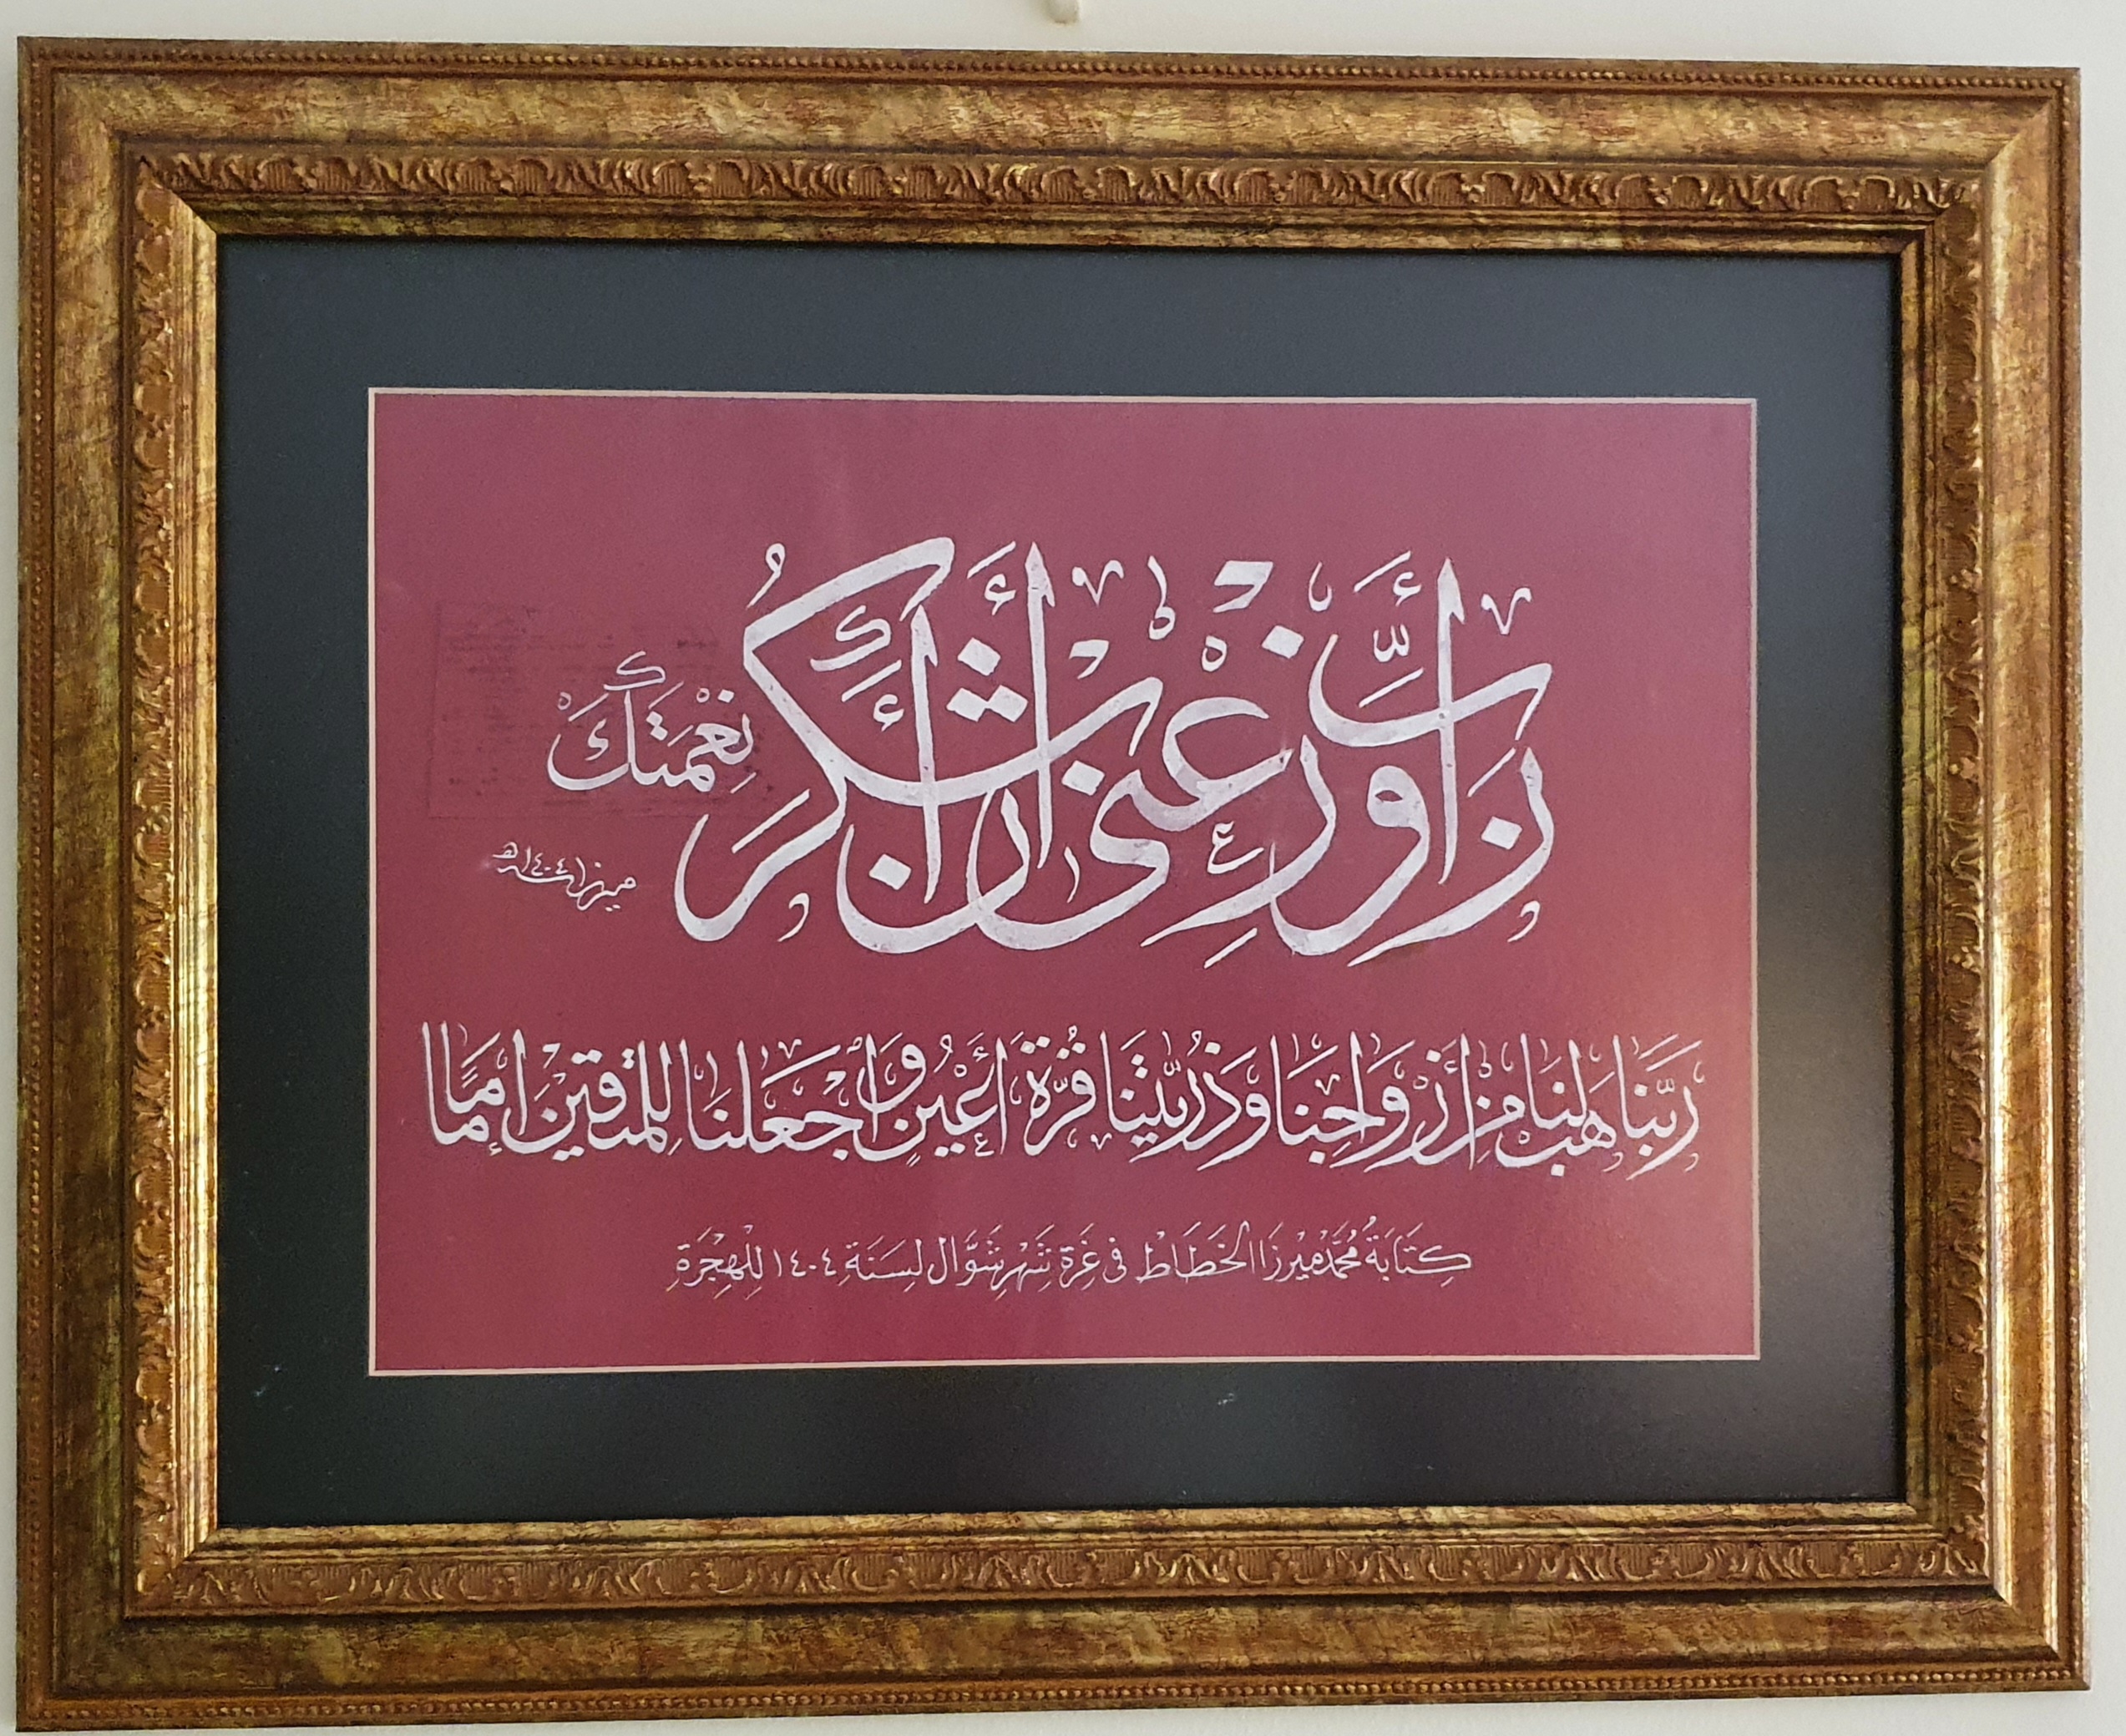 رَبِّ أَوْزِعْنِي أَنْ أَشْكُرَ نِعْمَتَكَ
ميرزا سنة ١٤٠٤هـ
رَبَّنَا هَبْ لَنَا مِنْ أَزْوَاجِنَا وَذُرِّيَّتِنَا قُرَّةَ أَعْيُنٍ وَاجْعَلْنَا لِلْمُتَّقِينَ إِمَامًا
كِتَابَةُ مُحَمَّد مِيرزَا الخَطَّاط فى غَرَّة شَهْرِ شَوَّال لِسَنَةِ ١٤٠٤ لِلْهِجْرَةِ